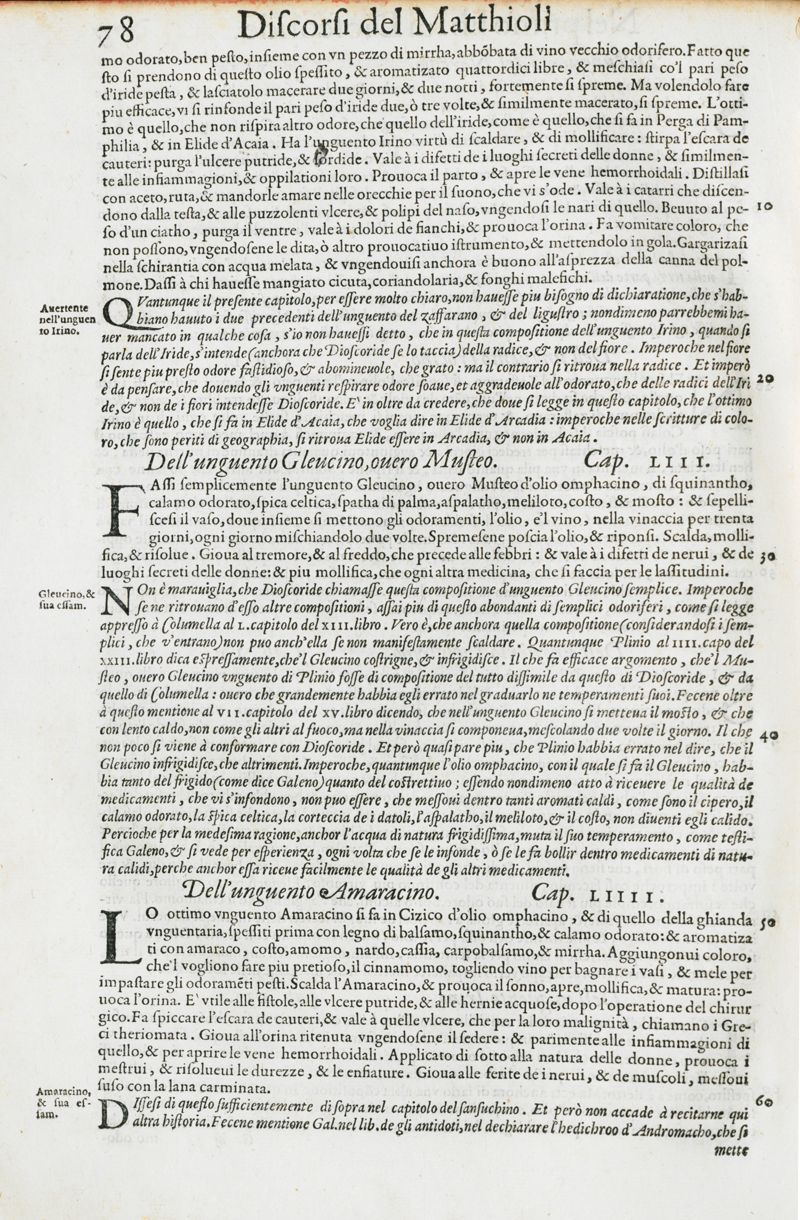 78
Diſcorſi del Matthioli
mo odorato, ben peſto, inſieme con vn pezzo di mirrha, abbõbata di vino vecchio odorifero. Fatto que
ſto ſi prendono di queſto olio ſpeſſito, & aromatizato quattordici libre, & meſchiaſi co'l pari peſo
d'iride peſta, & laſciatolo macerare due giorni, & due notti, fortemente ſi ſpreme. Ma volendolo fare
piu efficace, vi ſi rinfonde il pari peſo d'iride due, ò tre volte, & ſimilmente macerato, ſi ſpreme. L'otti-
mo è quello, che non riſpira altro odore, che quello dell'iride, come è quello, che ſi fa in Perga di Pam-
philia, & in Elide d'Acaia. Ha l'unguento Irino virtù di ſcaldare, & di mollificare: ſtirpa l'eſcara de
cauteri: purga l'ulcere putride, & ſordide. Vale à i difetti de i luoghi ſecreti delle donne, & ſimilmen-
te alle infiammagioni, & oppilationi loro. Prouoca il parto, & apre le vene hemorrhoidali. Diſtillaſi
con aceto, ruta, & mandorle amare nelle orecchie per il ſuono, che vi s'ode. Vale à i catarri che diſcen-
dono dalla teſta, & alle puzzolenti vlcere, & polipi del naſo, vngendoſi le nari di quello. Beuuto al pe-
10
ſo d'un ciatho, purga il ventre, vale à i dolori de fianchi, & prouoca l'orina. Fa vomitare coloro, che
non poſſono, vngendoſene le dita, ò altro prouocatiuo iſtrumento, & mettendolo in gola. Gargarizaſi
nella ſchirantia con acqua melata, & vngendouiſi anchora è buono all'aſprezza della canna del pol-
mone. Daſſi à chi haueſſe mangiato cicuta, coriandolaria, & fonghi malefichi.
Auertente
nell'unguen
to Irino.
QVantunque il preſente capitolo, per eſſere molto chiaro, non haueſſe piu biſogno di dichiaratione, che s'hab-
biano hauuto i due precedenti dell'unguento del zaffarano, & del liguſtro; nondimeno parrebbemi ha-
uer mancato in qualche coſa, s'io non haueſſi detto, che in queſta compoſitione dell'unguento Irino, quando ſi
parla dell'Iride, s'intende (anchora che Dioſcoride ſe lo taccia) della radice, & non del fiore. Imperoche nel fiore
ſi ſente piu preſto odore faſtidioſo, & abomineuole, che grato: ma il contrario ſi ritroua nella radice. Et imperò
è da penſare, che douendo gli vnguenti reſpirare odore ſoaue, et aggradeuole all'odorato, che delle radici dell'Iri
20
de, & non de i fiori intendeſſe Dioſcoride. E' in oltre da credere, che doue ſi legge in queſto capitolo, che l'ottimo
Irino è quello, che ſi fa in Elide d'Acaia, che voglia dire in Elide d'Arcadia: imperoche nelle ſcritture di colo-
ro, che ſono periti di geographia, ſi ritroua Elide eſſere in Arcadia, & non in Acaia.
Dell'unguento Gleucino, ouero Muſteo. Cap. LIII.
FAſſi ſemplicemente l'unguento Gleucino, ouero Muſteo d'olio omphacino, di ſquinantho,
calamo odorato, ſpica celtica, ſpatha di palma, aſpalatho, meliloto, coſto, & moſto: & ſepelli-
ſceſi il vaſo, doue inſieme ſi mettono gli odoramenti, l'olio, e'l vino, nella vinaccia per trenta
giorni, ogni giorno miſchiandolo due volte. Spremeſene poſcia l'olio, & riponſi. Scalda, molli-
fica, & riſolue. Gioua al tremore, & al freddo, che precede alle febbri: & vale à i difetti de nerui, & de
30
luoghi ſecreti delle donne: & piu mollifica, che ogni altra medicina, che ſi faccia per le laſſitudini.
Gleucino, &
ſua eſſam.
NOn è marauiglia, che Dioſcoride chiamaſſe queſta compoſitione d'unguento Gleucino ſemplice. Imperoche
ſe ne ritrouano d'eſſo altre compoſitioni, aſſai piu di queſto abondanti di ſemplici odoriferi, come ſi legge
appreſſo à Columella al L. capitolo del XIII. libro. Vero è, che anchora quella compoſitione (conſiderandoſi i ſem-
plici, che v'entrano) non puo anch'ella ſe non manifeſtamente ſcaldare. Quantunque Plinio al IIII. capo del
XXIII. libro dica eſpreſſamente, che'l Gleucino coſtrigne, & infrigidiſce. Il che fa efficace argomento, che'l Mu-
ſteo, ouero Gleucino vnguento di Plinio foſſe di compoſitione del tutto diſſimile da queſto di Dioſcoride, & da
quello di Columella: ouero che grandemente habbia egli errato nel graduarlo ne temperamenti ſuoi. Fecene oltre
à queſto mentione al VII. capitolo del XV. libro dicendo, che nell'unguento Gleucino ſi metteua il moſto, & che
con lento caldo, non come gli altri al fuoco, ma nella vinaccia ſi componeua, meſcolando due volte il giorno. Il che
40
non poco ſi viene à conformare con Dioſcoride. Et però quaſi pare piu, che Plinio habbia errato nel dire, che il
Gleucino infrigidiſce, che altrimenti. Imperoche, quantunque l'olio omphacino, con il quale ſi fa il Gleucino, hab-
bia tanto del frigido (come dice Galeno) quanto del coſtrettiuo; eſſendo nondimeno atto à riceuere le qualità de
medicamenti, che vi s'infondono, non puo eſſere, che meſſoui dentro tanti aromati caldi, come ſono il cipero, il
calamo odorato, la ſpica celtica, la corteccia de i datoli, l'aſpalatho, il meliloto, & il coſto, non diuenti egli calido.
Percioche per la medeſima ragione, anchor l'acqua di natura frigidiſſima, muta il ſuo temperamento, come teſti-
fica Galeno, & ſi vede per eſperienza, ogni volta che ſe le infonde, ò ſe le fa bollir dentro medicamenti di natu-
ra calidi, perche anchor eſſa riceue facilmente le qualità de gli altri medicamenti.
Dell'unguento Amaracino. Cap. LIIII.
LO ottimo vnguento Amaracino ſi fa in Cizico d'olio omphacino, & di quello della ghianda
50
vnguentaria, ſpeſſiti prima con legno di balſamo, ſquinantho, & calamo odorato: & aromatiza
ti con amaraco, coſto, amomo, nardo, caſſia, carpobalſamo, & mirrha. Aggiungonui coloro,
che'l vogliono fare piu pretioſo, il cinnamomo, togliendo vino per bagnare i vaſi, & mele per
impaſtare gli odoramẽti peſti. Scalda l'Amaracino, & prouoca il ſonno, apre, mollifica, & matura: pro-
uoca l'orina. E' vtile alle fiſtole, alle vlcere putride, & alle hernie acquoſe, dopo l'operatione del chirur
gico. Fa ſpiccare l'eſcara de cauteri, & vale à quelle vlcere, che per la loro malignità, chiamano i Gre-
ci theriomata. Gioua all'orina ritenuta vngendoſene il ſedere: & parimente alle infiammagioni di
quello, & per aprire le vene hemorrhoidali. Applicato di ſotto alla natura delle donne, prouoca i
meſtrui, & riſolueui le durezze, & le enfiature. Gioua alle ferite de i nerui, & de muſcoli, meſſoui
ſuſo con la lana carminata.
Amaracino,
& ſua eſ-
ſam.
DIſſeſi di queſto ſufficientemente di ſopra nel capitolo del ſanſuchino. Et però non accade à recitarne qui
60
altra hiſtoria. Fecene mentione Gal. nel lib. de gli antidoti, nel dechiarare l'hedichroo d'Andromacho, che ſi
mette